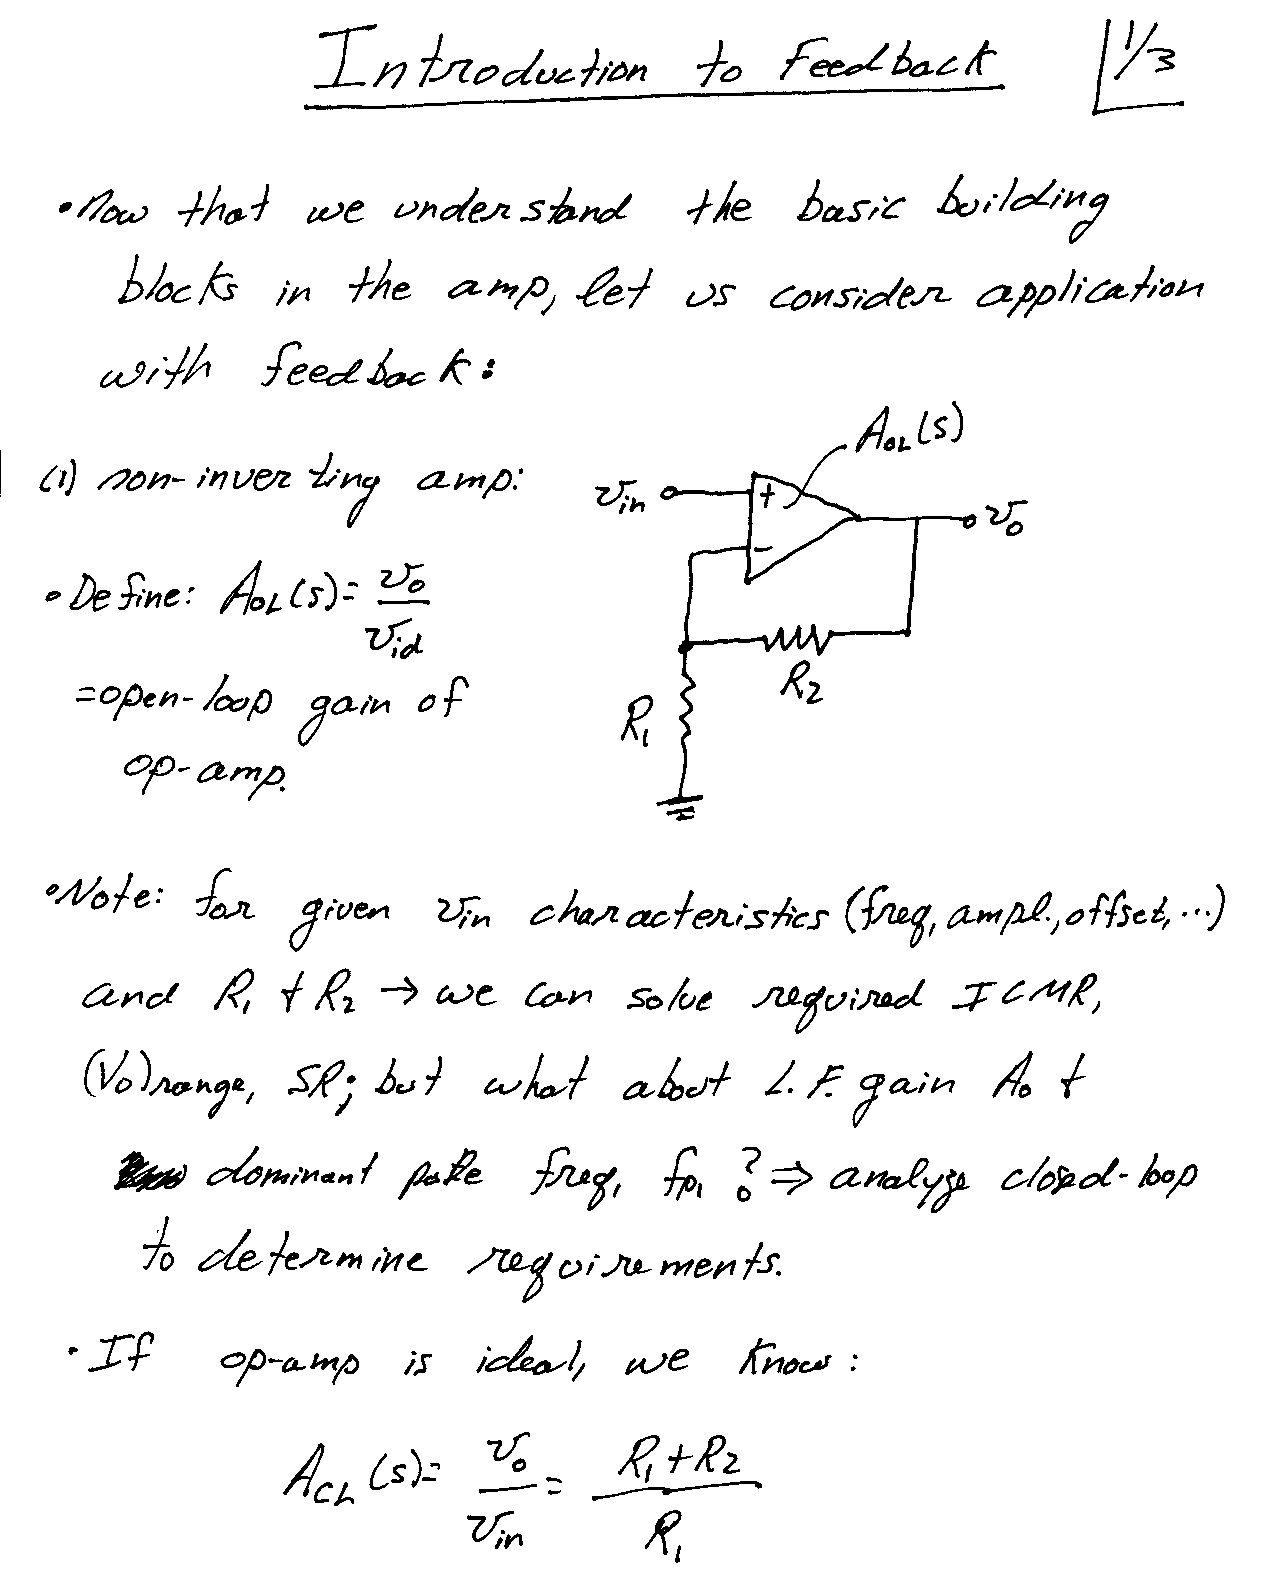 Introduction to Feedback 1/3
• Now that we understand the basic building
blocks in the amp, let us consider application
with feedback:
A_OL(s)
(1) non-inverting amp:
v_in
+
v_o
-
• Define: A_OL(s) = v_o / v_id
R_2
= open-loop gain of
R_1
op-amp.
• Note: for given v_in characteristics (freq, ampl., offset, ...)
and R_1 & R_2 → we can solve required ICMR,
(V_o)range, SR; but what about L.F. gain A_o &
dominant pole freq, f_p1 ? ⇒ analyze closed-loop
to determine requirements.
• If op-amp is ideal, we know:
A_CL(s) = v_o / v_in = (R_1 + R_2) / R_1